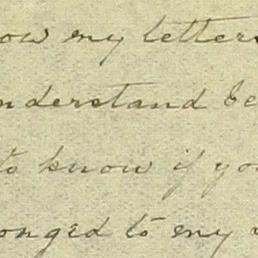 ow my letters
nderstand be
to know if you
onged to my